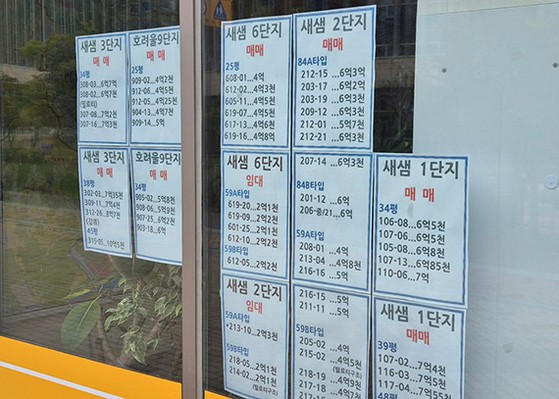 새샘 3단지
매 매
34평
308-03...6억7억
308-02...6억7천
(필로티)
307-08...7억2천
307-16...7억3천
호려울9단지
매매
25평
909-02...4억2천
912-06...4억5천
912-05...4억25천
904-10...4억3천
909-14...5억
새샘 3단지
매 매
38평
302-03...7억35천
309-11...7억4천
312-26...8억7천
45평
315-05...10억5천
호려울9단지
매매
34평
905-02...5억8천
908-06...5억9천
907-25...6억3천
903-18...6억
새샘 6단지
매매
25평
608-01...4억
612-02...4억3천
605-11...4억5천
619-01...4억7천
617-13...4억6천
619-16...4억8천
새샘 2단지
매매
84A타입
212-15 ...6억3억
203-17 ...6억2억
203-19 ...6억3천
212-09 ...6억3천
212-01 ...5억7천
212-21 ...6억3천
새샘 6단지
임대
59A타입
619-20...2억1천
619-09...2억2천
601-25...2억3천
612-10...2억2천
59B타입
612-05...2억2천
207-14 ...6억3천
84B타입
201-12 ...6억
206-중/21...6억
59A타입
208-01 ...4억
213-04 ...4억8천
216-16 ...5억
새샘 1단지
매 매
34평
106-08...6억5천
107-06...6억5천
105-08...6억8천
107-13...6억85천
110-06...7억
새샘 2단지
임대
59A타입
*213-10...2억3천
59B타입
218-05...2억1천
214-02...2억1천
216-15 ...5억
211-11 ...5억
59B타입
205-02 ...4억
215-02 ...4억5천
(필로티구조)
218-19 ...4억5천
217-18 ...4억9천
새샘 1단지
매매
39평
107-02...7억4천
116-03...7억5천
117-04...7억55천
48평